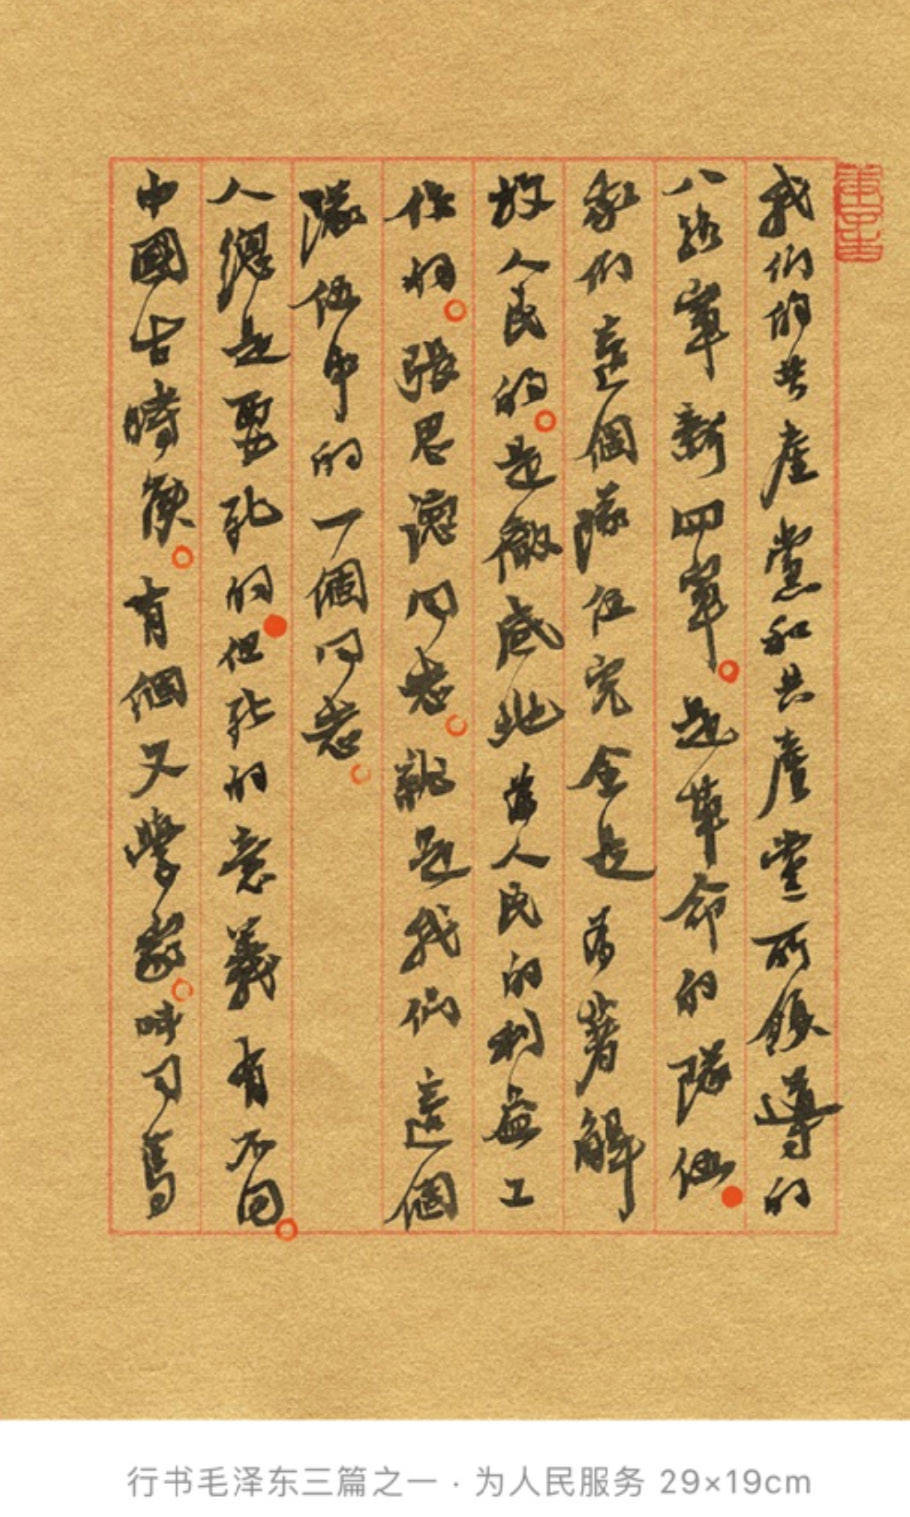 我們的共產黨和共產黨所領導的
八路軍新四軍。是革命的隊伍●
我們這個隊伍完全是為著解
放人民的。是徹底地為人民的利益工
作的。張思德同志。就是我們這個
隊伍中的一個同志。
人總是要死的●但死的意義有不同。
中國古時候。有個文學家。叫司馬
行书毛泽东三篇之一 · 为人民服务 29×19cm